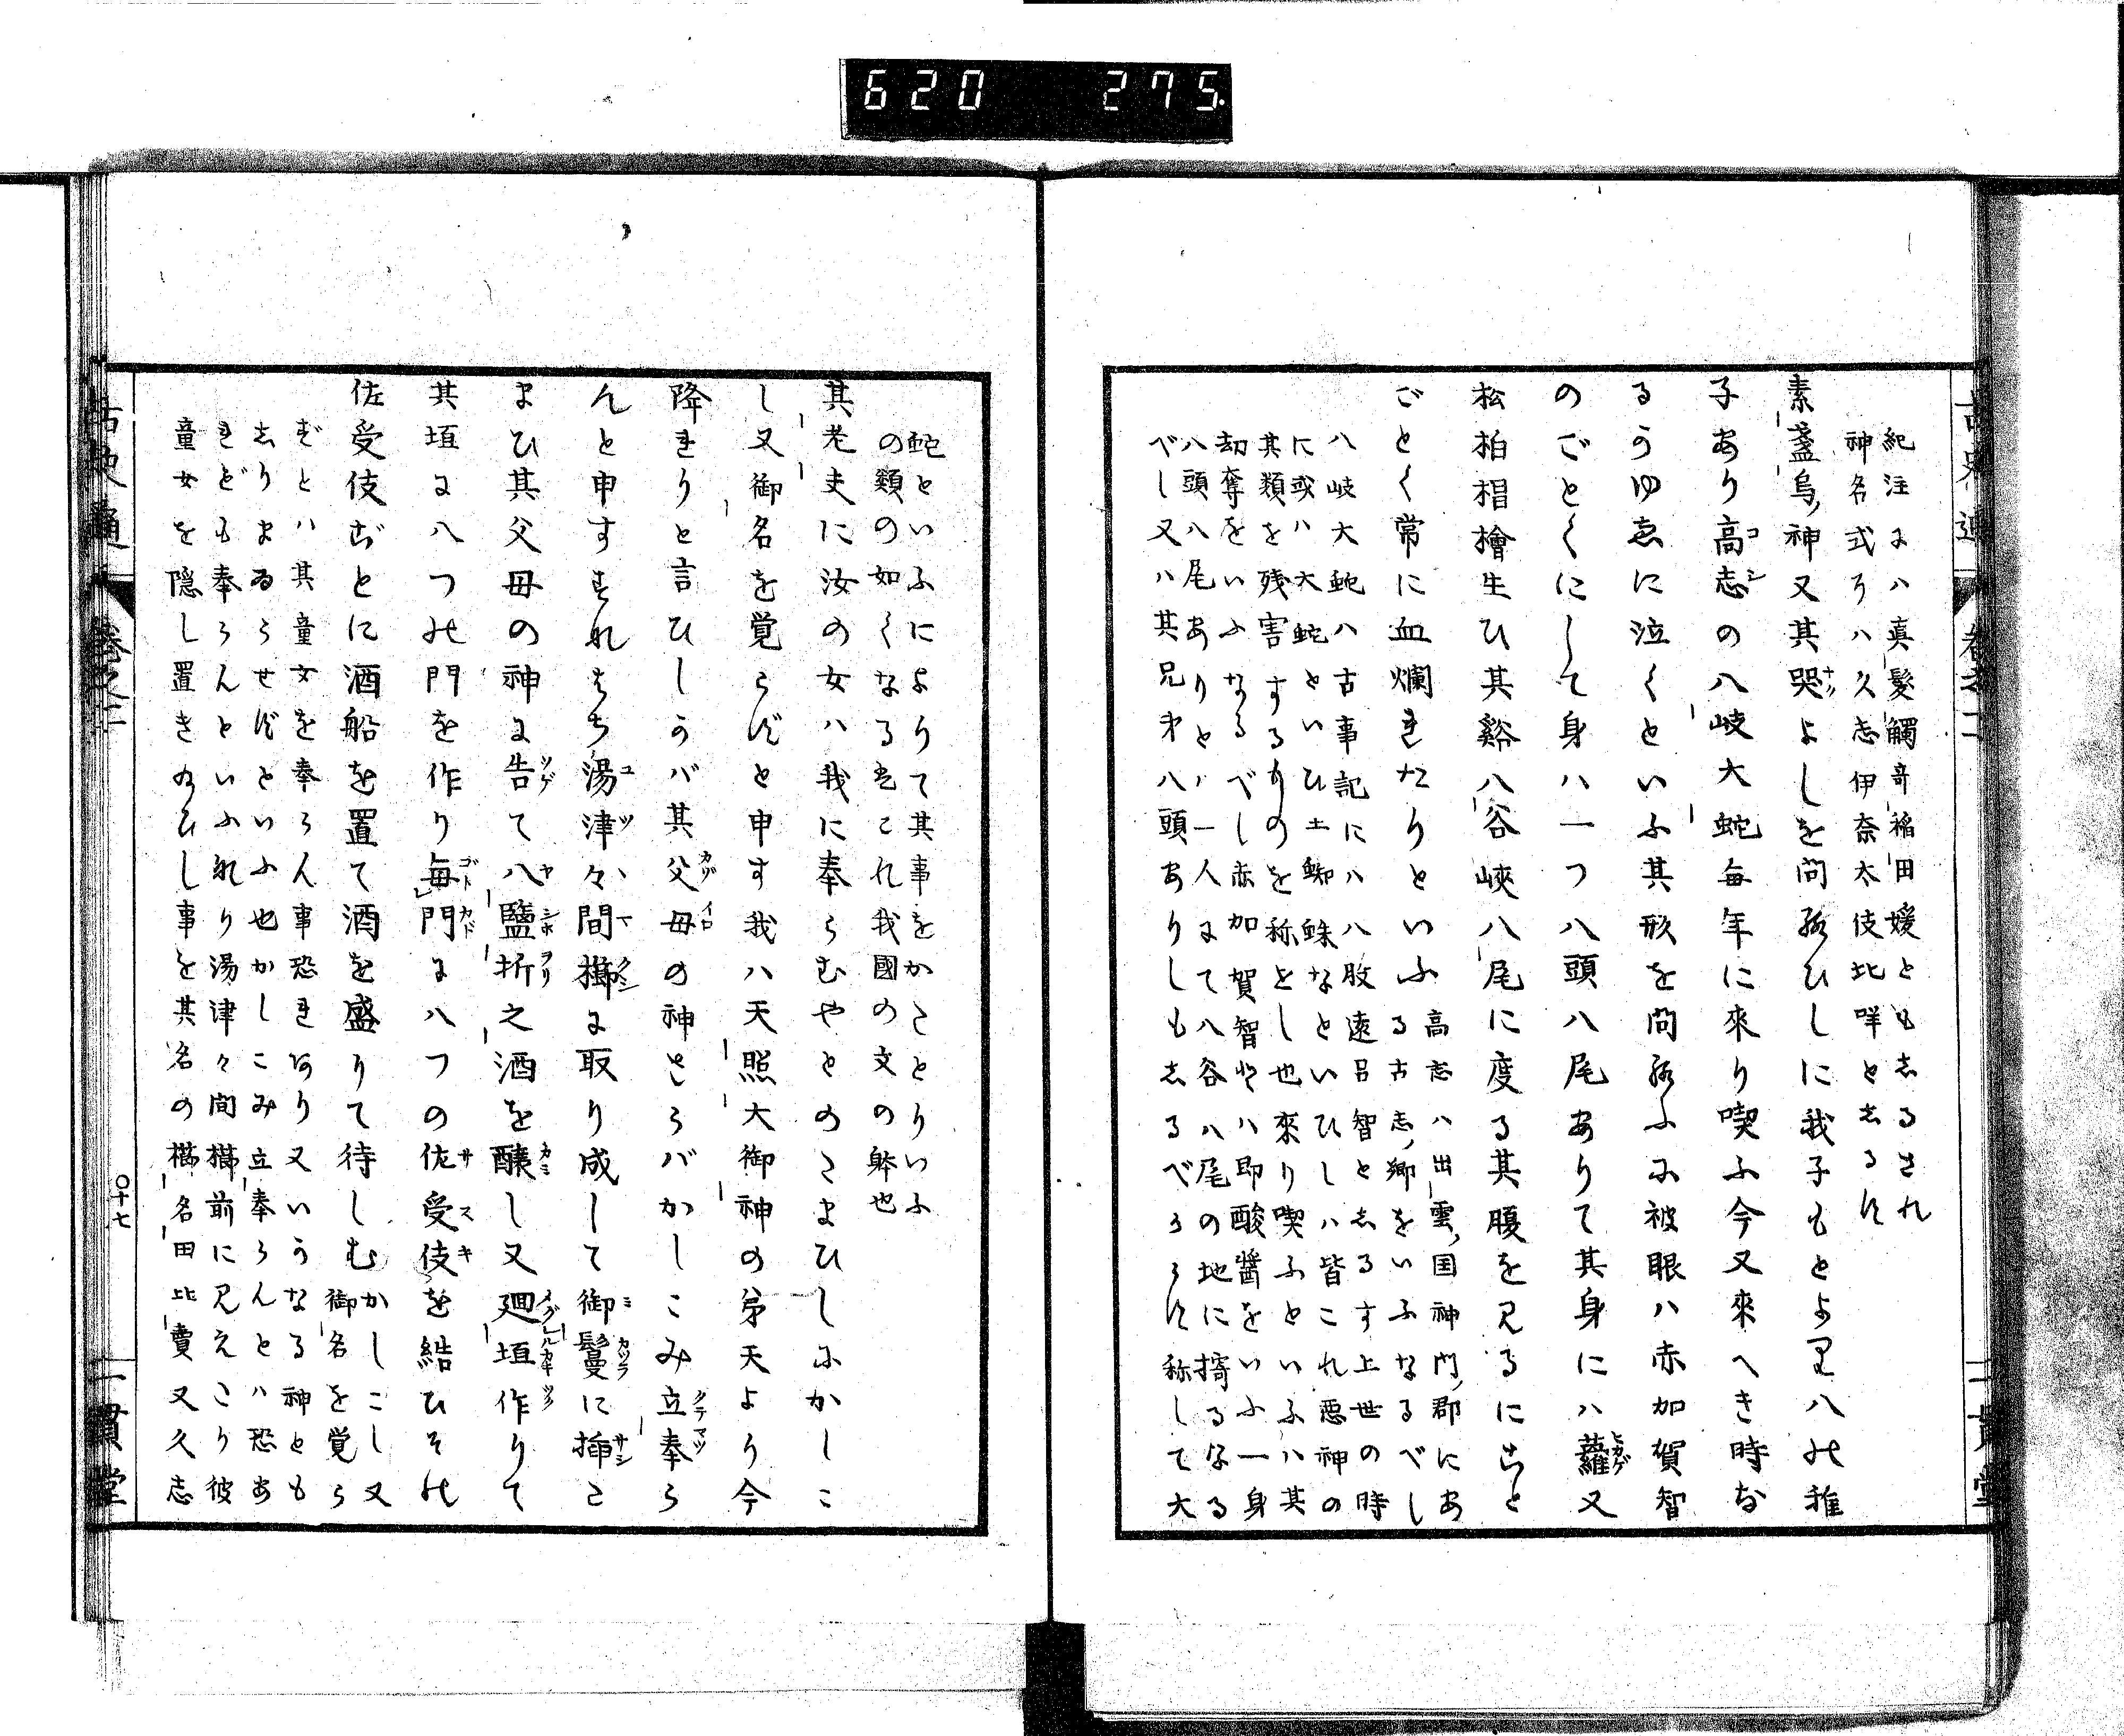 620 275.
古史通 巻之二 一貫堂
紀注よハ真髪觸奇稲田媛ともしるされ
神名式うハ久志伊奈太伎比咩としるす
素盞烏神又其哭よしを問給ひしに我子もとより八の稚
子あり高志の八岐大蛇毎年に來り喫ふ今又來へき時な
るうゆゑに泣くといふ其形を問給ふよ被眼ハ赤加賀智
のごとくにして身ハ一つ八頭八尾ありて其身にハ蘿又
松柏椙檜生ひ其谿八谷峽八尾に度る其腹を見るにこと
ごとく常に血爛きたりといふ
高志ハ出雲国神門郡にあ
る古志郷をいふなるべし
八岐大蛇ハ古事記にハ八股遠呂智としるす上世の時
に或ハ大蛇といひ土蜘蛛なといひしハ皆これ悪神の
其類を残害するものを称せし也來り喫ふといふハ其
劫奪をいふなるべし赤加賀智とハ即酸醤をいふ一身
八頭八尾ありとハ一人よて八谷八尾の地に搚るなる
べし又ハ其兄弟八頭ありしもしるべうらす称して大
蛇といふによりて其事をかさとりいふ
の類の如くなる是これ我國の文の躰也
其老夫に汝の女ハ我に奉らむやとのさまひしよかしこ
し又御名を覚らずと申す我ハ天照大御神の弟天より今
降きりと言ひしうバ其父母の神さらバかしこみ立奉ら
んと申すすれはち湯津々間櫛よ取り成して御鬘に挿さ
まひ其父母の神よ告て八鹽折之酒を醸し又廻垣作りて
其垣よ八つの門を作り毎門よ八つの佐受伎を結ひその
佐受伎ごとに酒船を置て酒を盛りて待しむ
かしこし又
御名を覚ら
ずとハ其童女を奉らん事恐きなり又いうなる神とも
しりまゐらせずといふ也かしこみ立奉らんとハ恐あ
きども奉らんといふれり湯津々間櫛前に見えたり彼
童女を隠し置きのひし事を其名の櫛名田比賣又久志
古史通 巻之二 〇十七 一貫堂